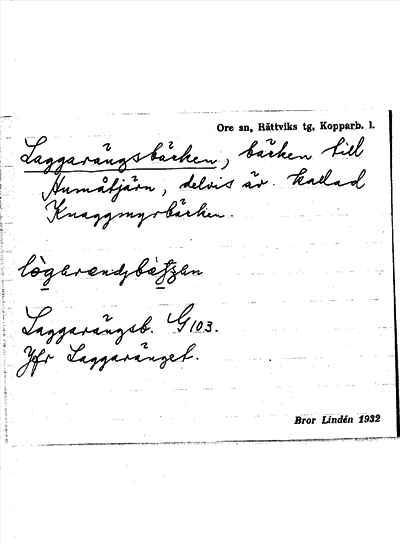 Ore sn, Rättviks tg, Kopparb. l.
Laggarängsbäcken, bäcken till
Anmåtjärn, delvis är. kallad
Knaggmyrbäcken.
Laggarängsb. G 103.
Jfr Laggaränget.
Bror Lindén 1932